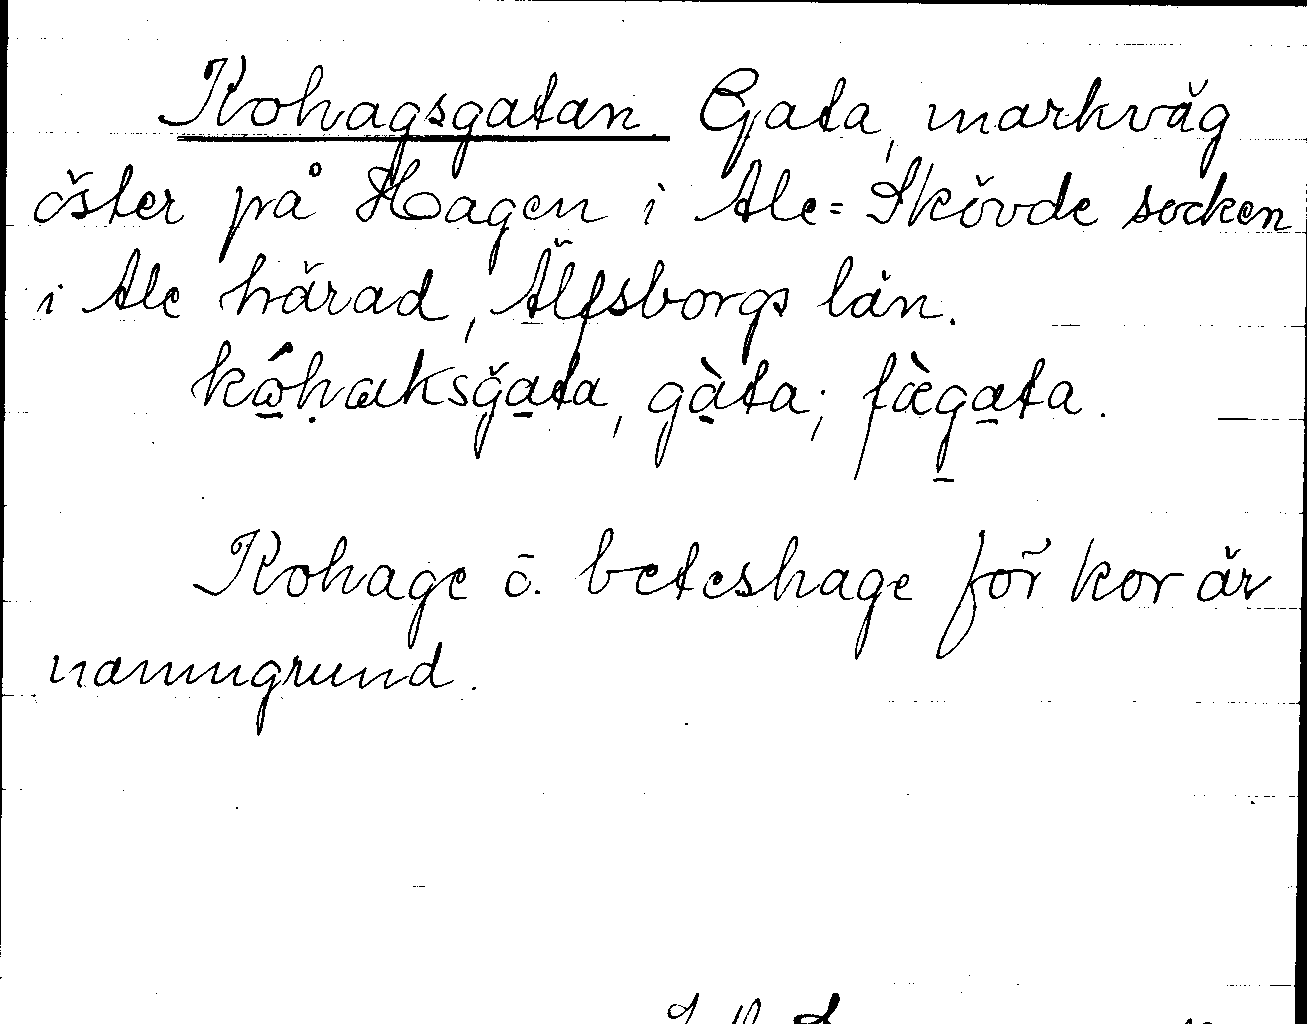 Kohagsgatan. Gata, markväg
öster på Hagen i Ale-Skövde socken
i Ale härad, Älfsborgs län.
kóhaksgata, gàta; fægata.
Kohage o. beteshage för kor är
namngrund.